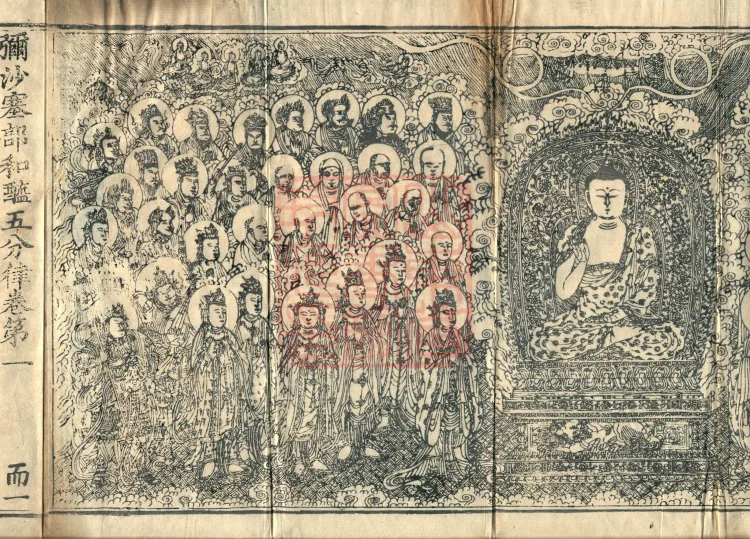 彌沙塞部和醯五分律卷第一
而一